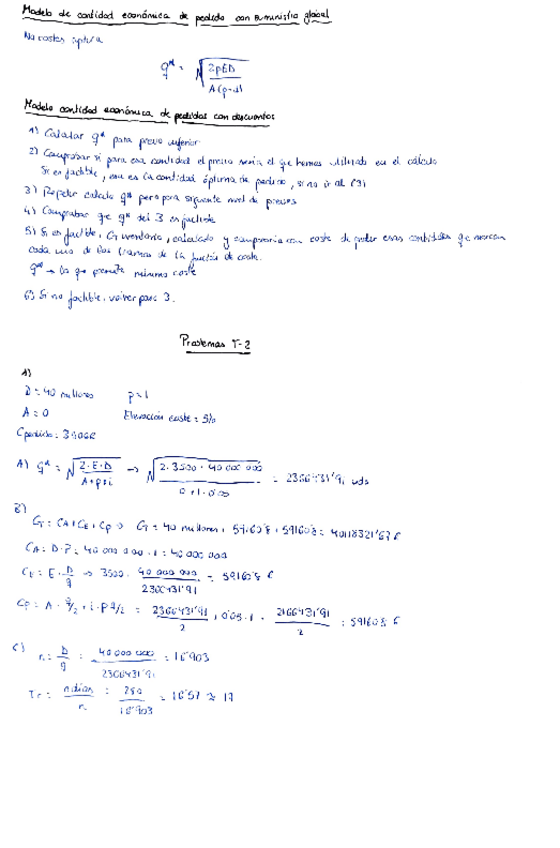 Modelo de cantidad económica de pedido con suministro gradual
No costes ruptura
q* = √(2pED / A(p-d))
Modelo cantidad económica de pedidos con descuentos
1) Calcular q* para precio inferior
2) Comprobar si para esa cantidad el precio sería el que hemos utilizado en el cálculo
Si es factible, esa es la cantidad óptima de pedido, si no ir al (3)
3) Repetir calculo q* pero para siguiente nivel de precios
4) Comprobar que q* del 3 es factible
5) Si es factible, inventario, calculado y con coste de pedir esas cantidades que marcan
cada uno de los tramos de la función de coste.
q** → la que permite mínimo coste
6) Si no factible, volver paso 3.
Problemas T-2
1)
D = 40 millones p = 1
A = 0 Elevación coste = 5%
Cpedido: 3500€
A) q* = √(2·E·D / A+p·i) → √(2·3500·40 000 000 / 0+1·0'05) = 2366431'91 uds
B)
CT = CA + CE + Cp → CT = 40 millones + 59160'8 + 59160'8 = 40118321'6 €
CA = D·P = 40 000 000 · 1 = 40 000 000
CE = E · D/q → 3500 · 40 000 000 / 2366431'91 = 59160'8 €
Cp = A · q/2 + i·P q/2 = 2366431'91 / 2 + 0'05·1 · 2366431'91 / 2 = 59160'8 €
C) n = D/q = 40 000 000 / 2366431'91 = 16'903
Tr = n días / n = 280 / 16'903 = 16'57 ≈ 17